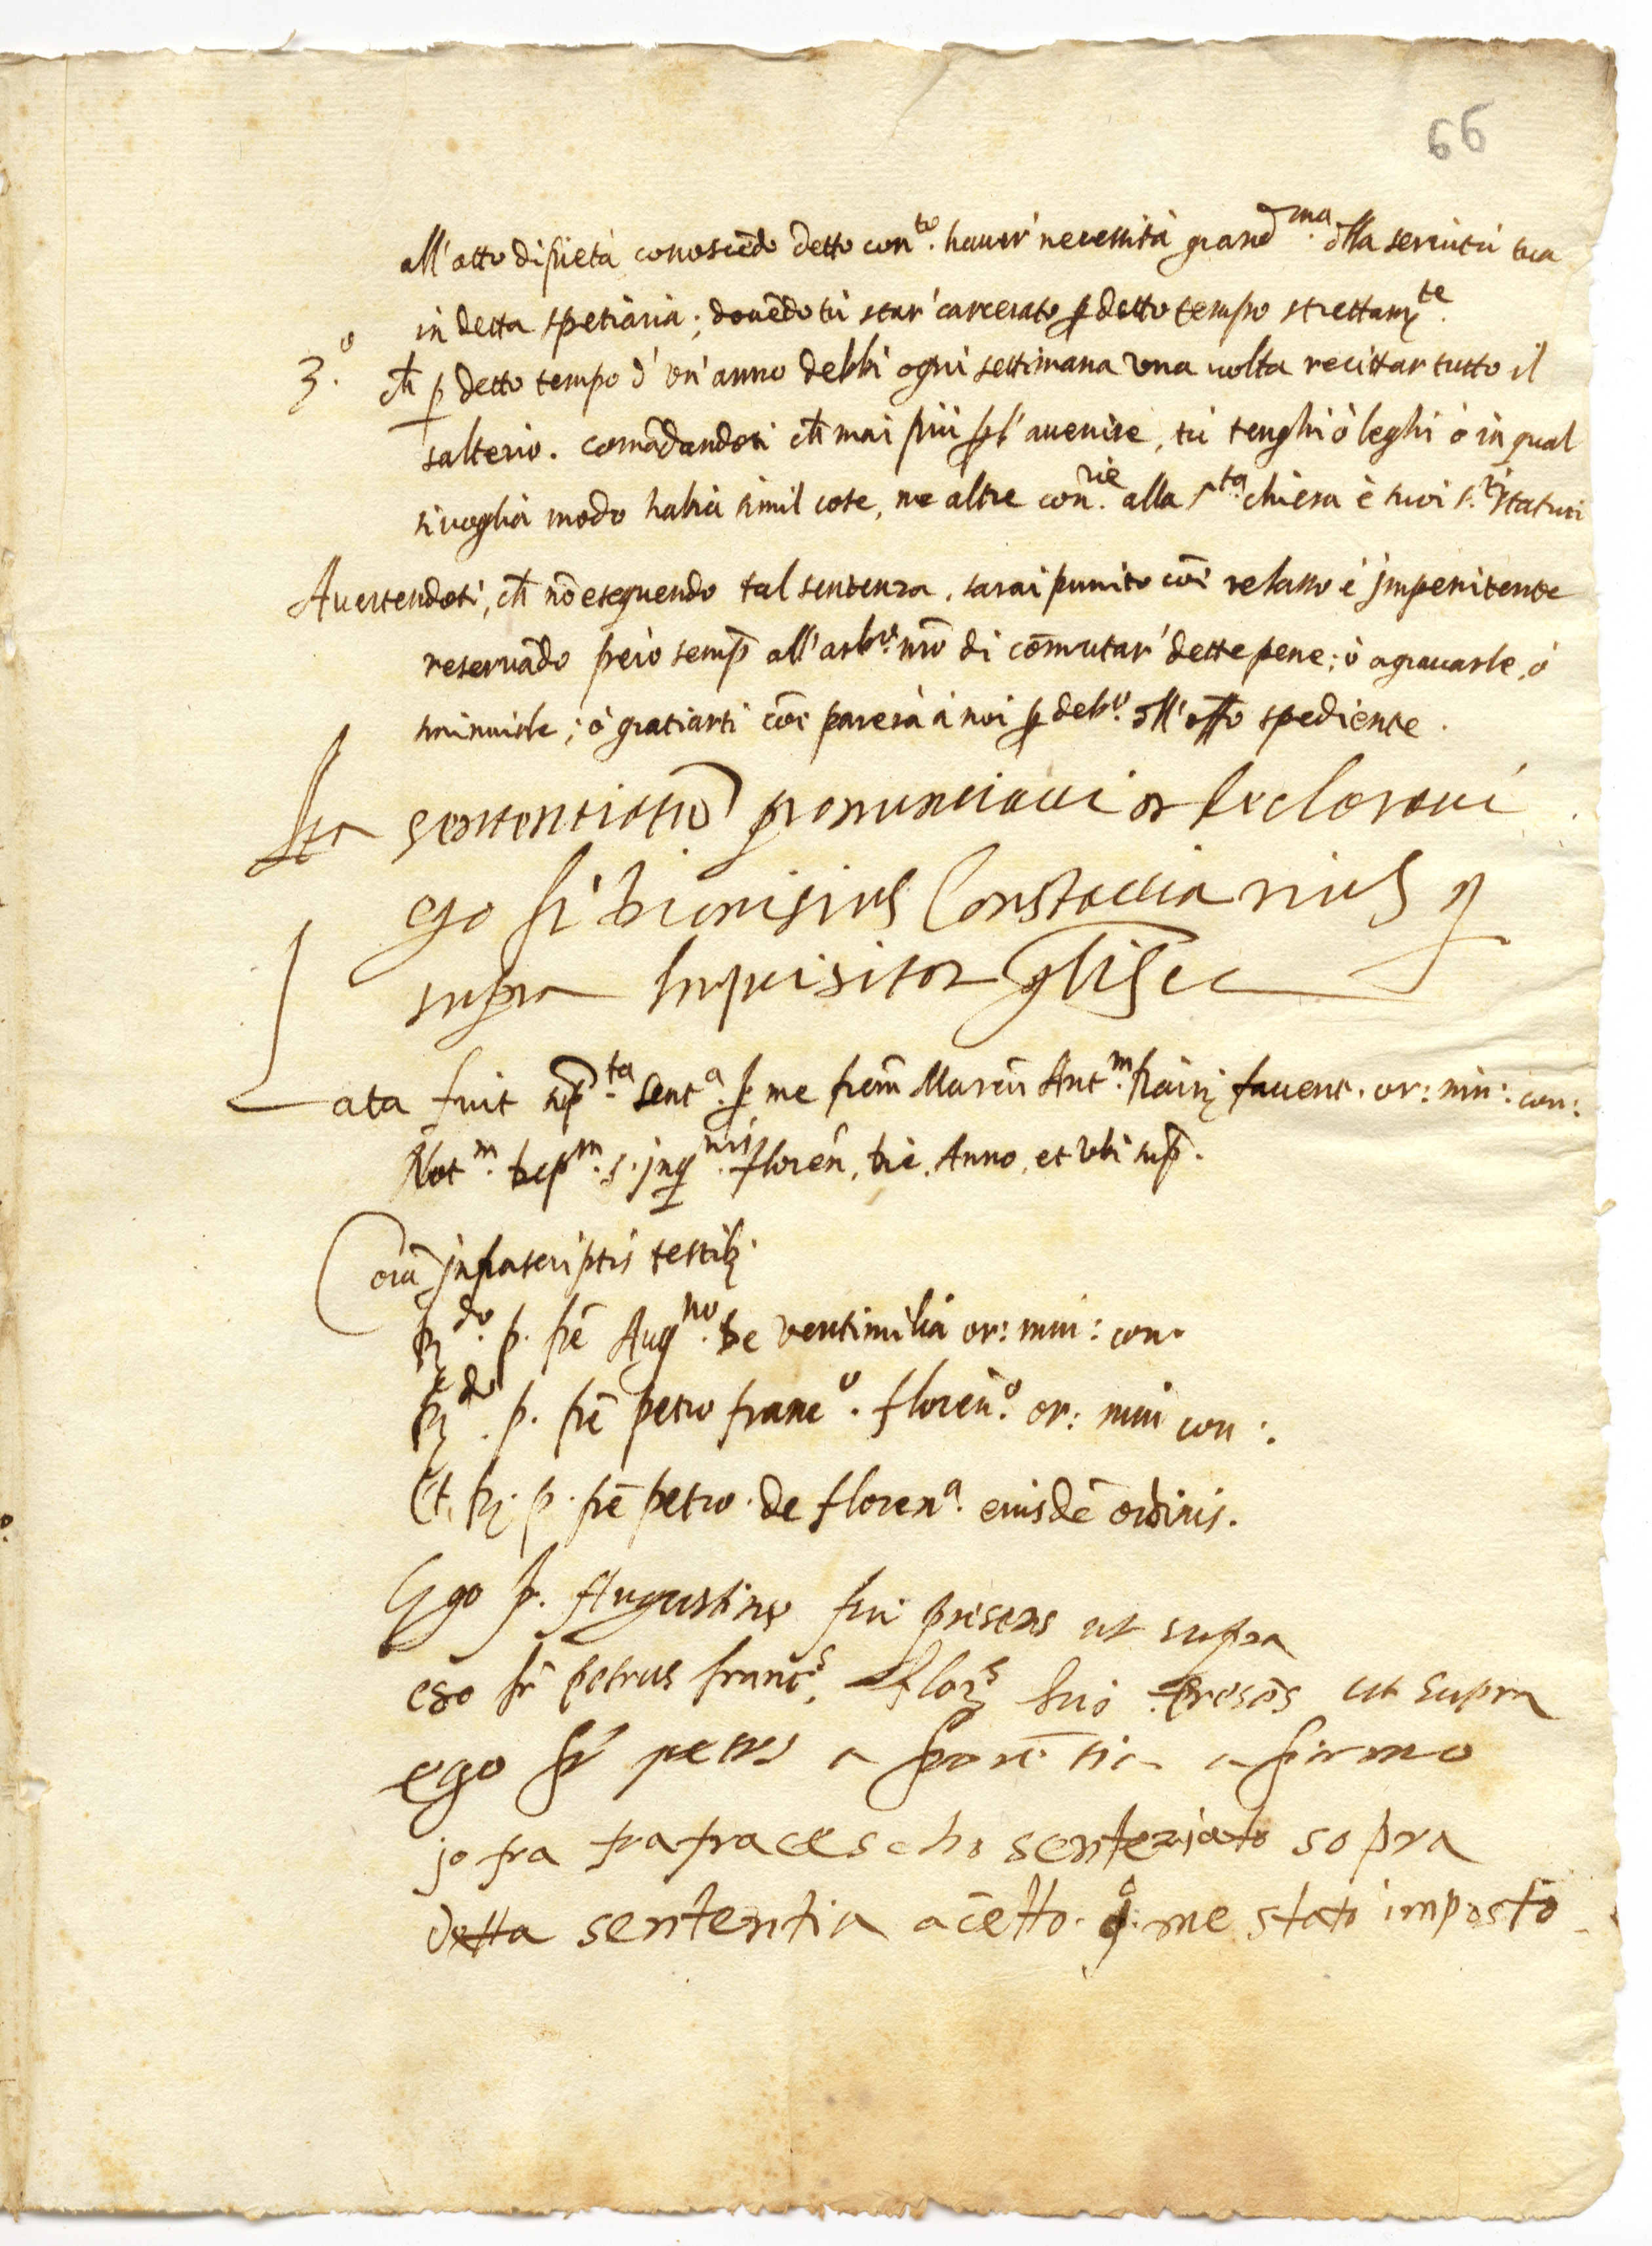 66
all'atto di pietà conoscēdo detto con.to haver' necessità grand.ma dlla servitù tua
in detta spetiaria; dovēdo tù star' carcerato p detto tempo strettam.te
3.o ch p detto tempo d'un'anno debbi ogni settimana una volta recittar tutto il
salterio. comādandoti ch mai più p l'avenire, tù tenghi ò leghi ò in qual
si voglia modo habia simil cose, ne altre con.rie alla s.ta chiesa è suoi s.ti statuti
Avertendoti, ch nō esequendo tal sentenza, sarai punito cōe relasso è jmpenitente
reservādo però semp all'arb.o nrō di cōmutar' dette pene; ò agravarle, ò
sminuirle; ò gratiarti cōe parerà à noi p deb.o dll'offo spediente.
Ita sententiavi pronunciavi et declaravi
ego fr Dionisius Constacciarius q
supra Inquisitor glis &c
Lata fuit sup.ta sent.a p me frem Marcū Ant.m favent. or: min: con:
Not.m dep.m s. jnq.nis floren. die, Anno, et ubi sup.
Corā jnfrascriptis testib;
R.do p. frē Aug.no de ventimilia or: min: con.
R.do p. frē petro franc.o floren.o or: min con:
Et R. p. frē petro de floren.a eiusdē ordinis.
Ego fr. Augustinus fui presens ut supra
ego fr petrus franc.s flor.s fui presēs ut supra
ego fr petrus a fiorētia afirmo
jo fra frafracescho senteziato sopra
detta sententia acētto q. me stato imposto